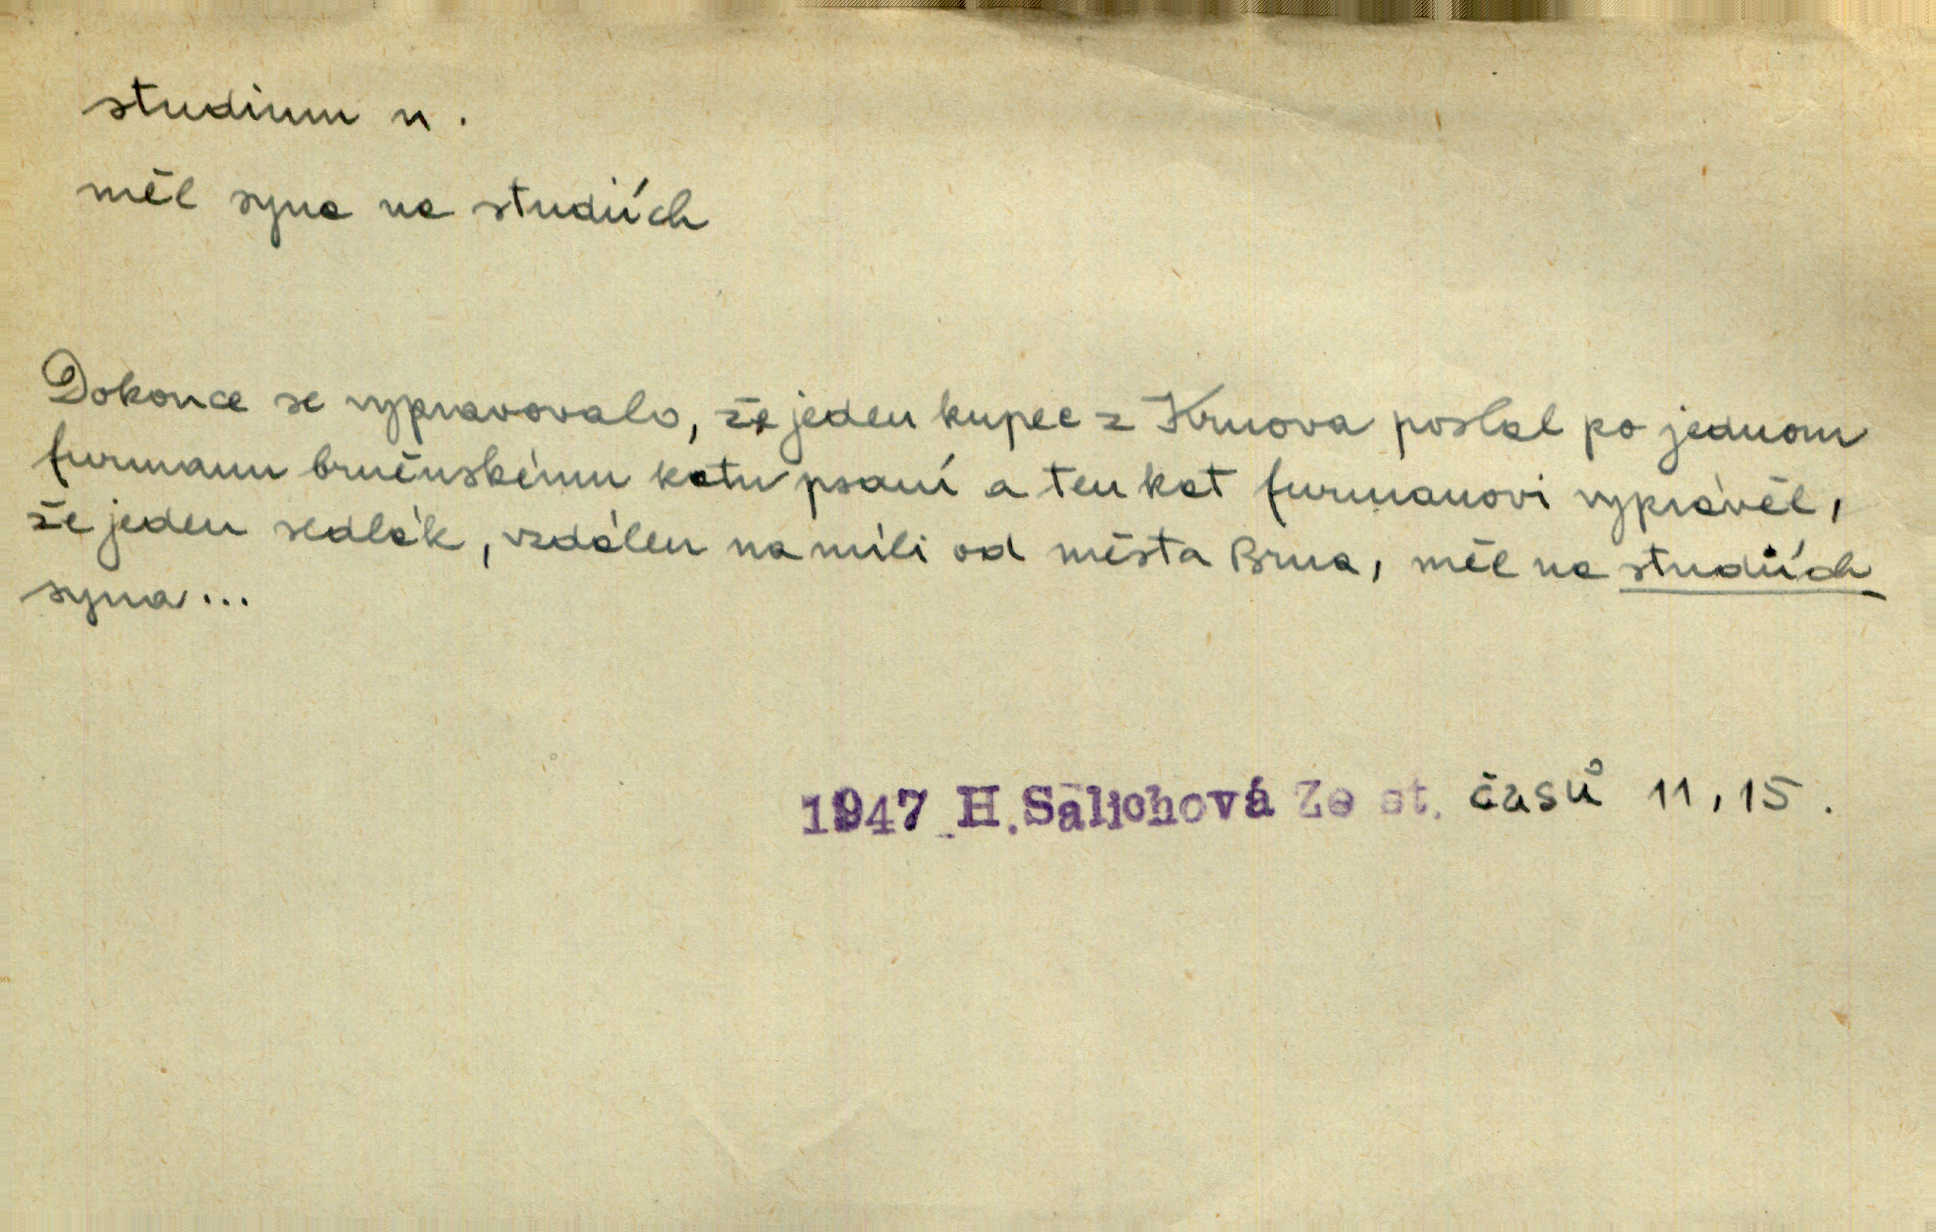 studium n.
měl syna na studiích
Dokonce se vypravovalo, že jeden kupec z Krnova poslal po jednom
furmanu brněnskému katu psaní a ten kat furmanovi vyprávěl,
že jeden sedlák, vzdálen na míli od města Brna, měl na studiích
syna...
1947 H. Salichová Ze st. časů 11, 15.